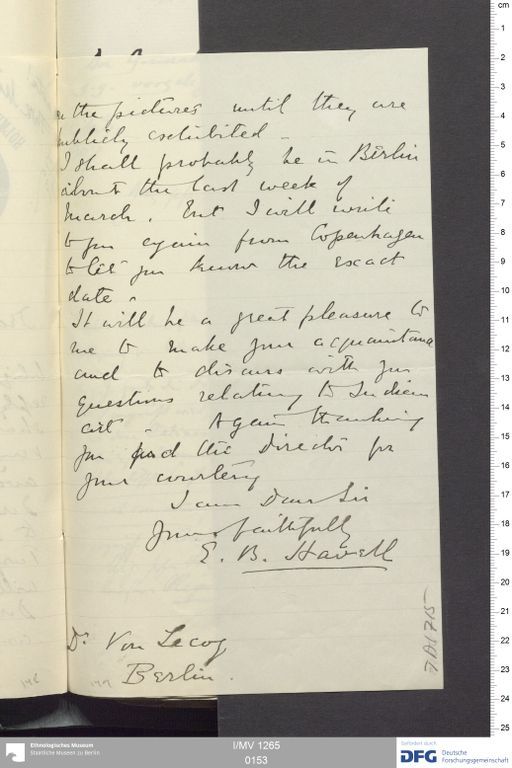 the pictures until they are
publicly exhibited.
I shall probably be in Berlin
about the last week of
March. But I will write
to you again from Copenhagen
to let you know the exact
date.
It will be a great pleasure to
me to make your acquaintance
and to discuss with you
questions relating to Indian
art. Again thanking
you and the Director for
your courtesy
I am Dear Sir
Yours faithfully
E. B. Havell
Dr Von Lecoq
Berlin.
Ethnologisches Museum
Staatliche Museen zu Berlin
I/MV 1265
0153
Gefördert durch
DFG Deutsche
Forschungsgemeinschaft
cm
1
2
3
4
5
6
7
8
9
10
11
12
13
14
15
16
17
18
19
20
21
22
23
24
25